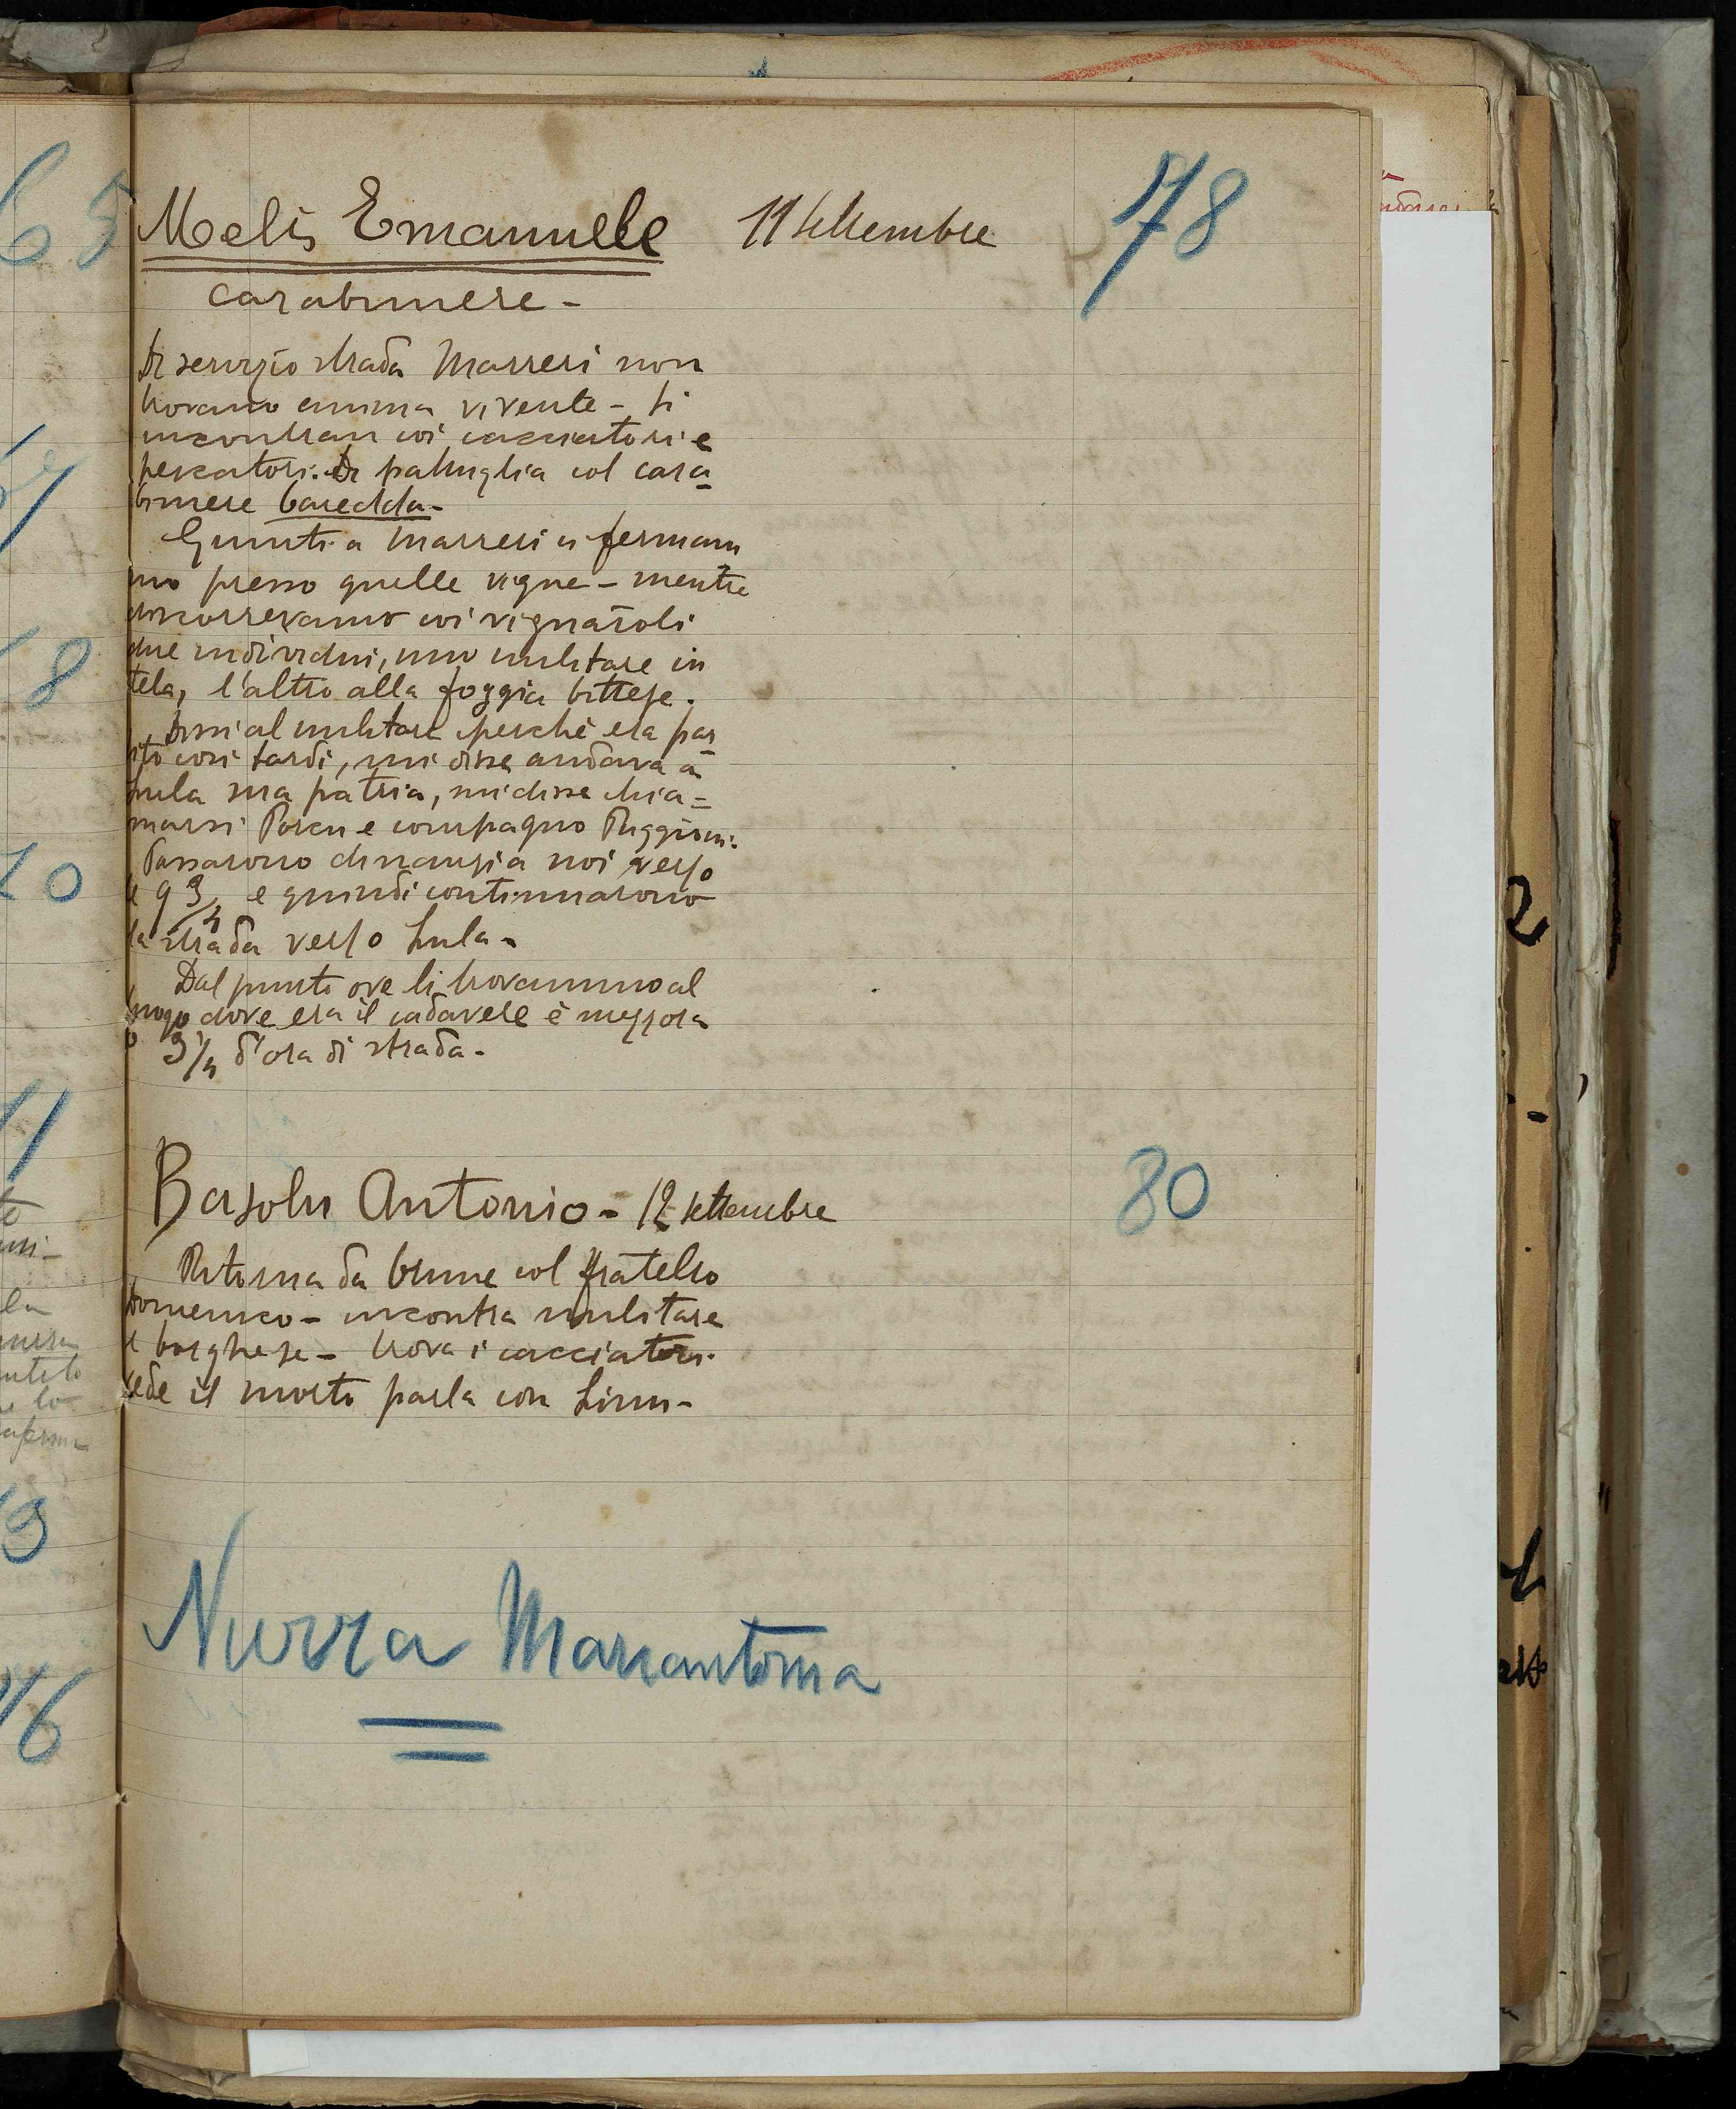 Melis Emanuele 11 settembre 78
carabiniere -
Di servizio strada Marreri non
trovano anima vivente - si
incontran coi cacciatori e
pescatori. Di pattuglia col cara=
biniere Caredda -
Giunti a Marreri ci fermam
mo presso quelle vigne - mentre
discorrevamo coi vignaroli
due individui, uno militare in
tela, l'altro alla foggia bittese.
Dissi al militare perchè era par
tito così tardi, mi disse andava a
Lula sua patria, mi disse chia=
marsi Porcu e compagno Puggioni.
Passarono dinanzi a noi verso
le 9 3/4 e quindi continuarono
la strada verso Lula -
Dal punto ove li trovammo al
luogo dove era il cadavere è mezzora
o 3/4 d'ora di strada -
Basolu Antonio - 12 settembre 80
Ritorna da Orune col fratello
Domenico - incontra militare
e borghese - trova i cacciatori.
vede il morto parla con
Nurra Mariantonia
65
8
10
11
16